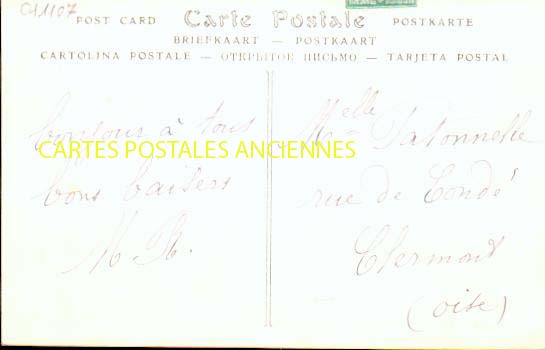 CM1107
POST CARD Carte Postale POSTKARTE
BRIEFKAART — POSTKAART
CARTOLINA POSTALE — ОТКРЫТОЕ ПИСЬМО — TARJETA POSTAL
bonjour à tous
bons baisers
M R.
Melle Patonnelle
rue de Condé
Clermont
(oise)
CARTES POSTALES ANCIENNES